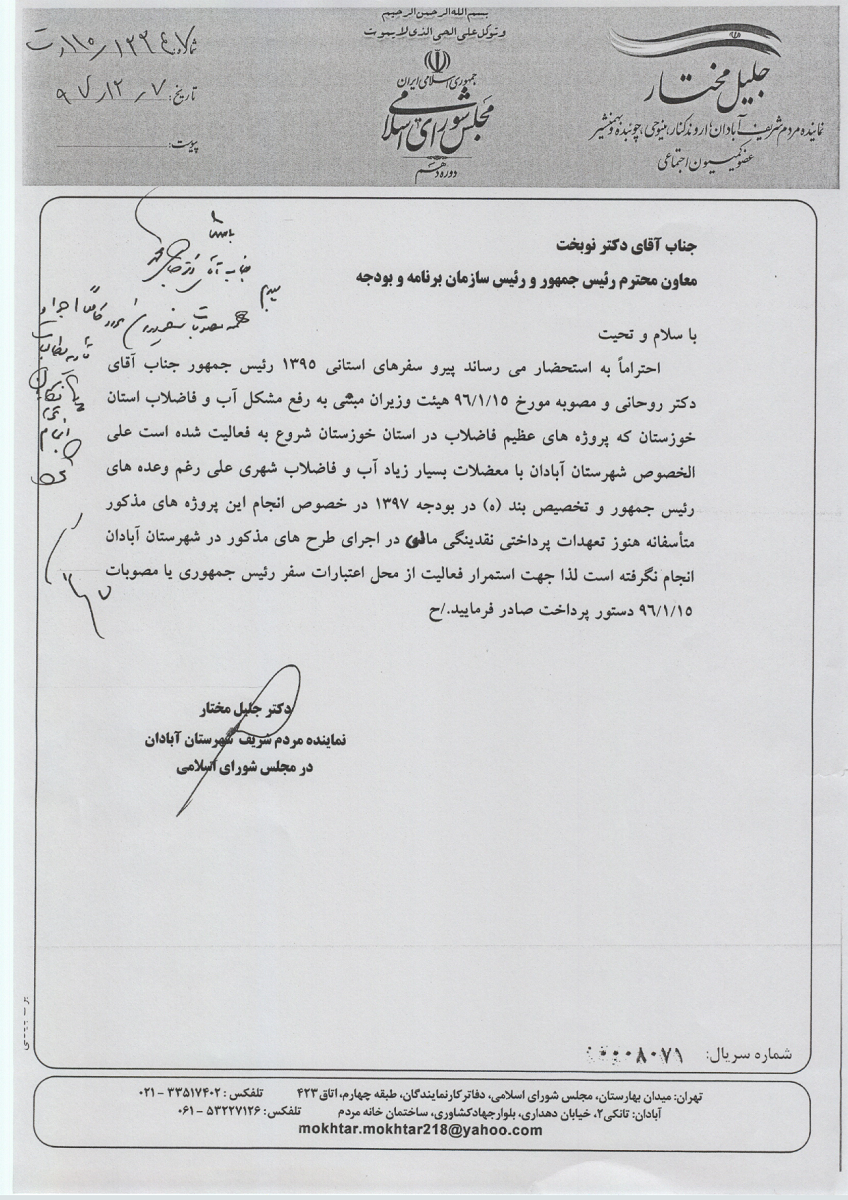 بسم الله الرحمن الرحیم
و توکل علی الحی الذی لا یموت
جمهوری اسلامی ایران
مجلس شورای اسلامی
دوره دهم
جلیل مختار
نماینده مردم شریف آبادان، اروندکنار، مینوحی، چوئبده و بهمنشیر
عضو کمیسیون اجتماعی
شماره:
تاریخ: ۹۷/۱۲/۷
پیوست:
جناب آقای دکتر نوبخت
معاون محترم رئیس جمهور و رئیس سازمان برنامه و بودجه
با سلام و تحیت
احتراماً به استحضار می رساند پیرو سفرهای استانی ۱۳۹۵ رئیس جمهور جناب آقای
دکتر روحانی و مصوبه مورخ ۹۶/۱/۱۵ هیئت وزیران مبنی به رفع مشکل آب و فاضلاب استان
خوزستان که پروژه های عظیم فاضلاب در استان خوزستان شروع به فعالیت شده است علی
الخصوص شهرستان آبادان با معضلات بسیار زیاد آب و فاضلاب شهری علی رغم وعده های
رئیس جمهور و تخصیص بند (ه) در بودجه ۱۳۹۷ در خصوص انجام این پروژه های مذکور
متأسفانه هنوز تعهدات پرداختی نقدینگی مالی در اجرای طرح های مذکور در شهرستان آبادان
انجام نگرفته است لذا جهت استمرار فعالیت از محل اعتبارات سفر رئیس جمهوری یا مصوبات
۹۶/۱/۱۵ دستور پرداخت صادر فرمایید./ح
دکتر جلیل مختار
نماینده مردم شریف شهرستان آبادان
در مجلس شورای اسلامی
شماره سریال: ۰۰۰۸۰۷۱
تهران: میدان بهارستان، مجلس شورای اسلامی، دفاتر کار نمایندگان، طبقه چهارم، اتاق ۴۲۳ تلفکس: ۳۳۵۱۷۴۰۲ – ۰۲۱
آبادان: تانکی۲، خیابان دهداری، بلوار جهاد کشاورزی، ساختمان خانه مردم تلفکس: ۵۳۲۲۷۱۲۶ – ۰۶۱
mokhtar.mokhtar218@yahoo.com